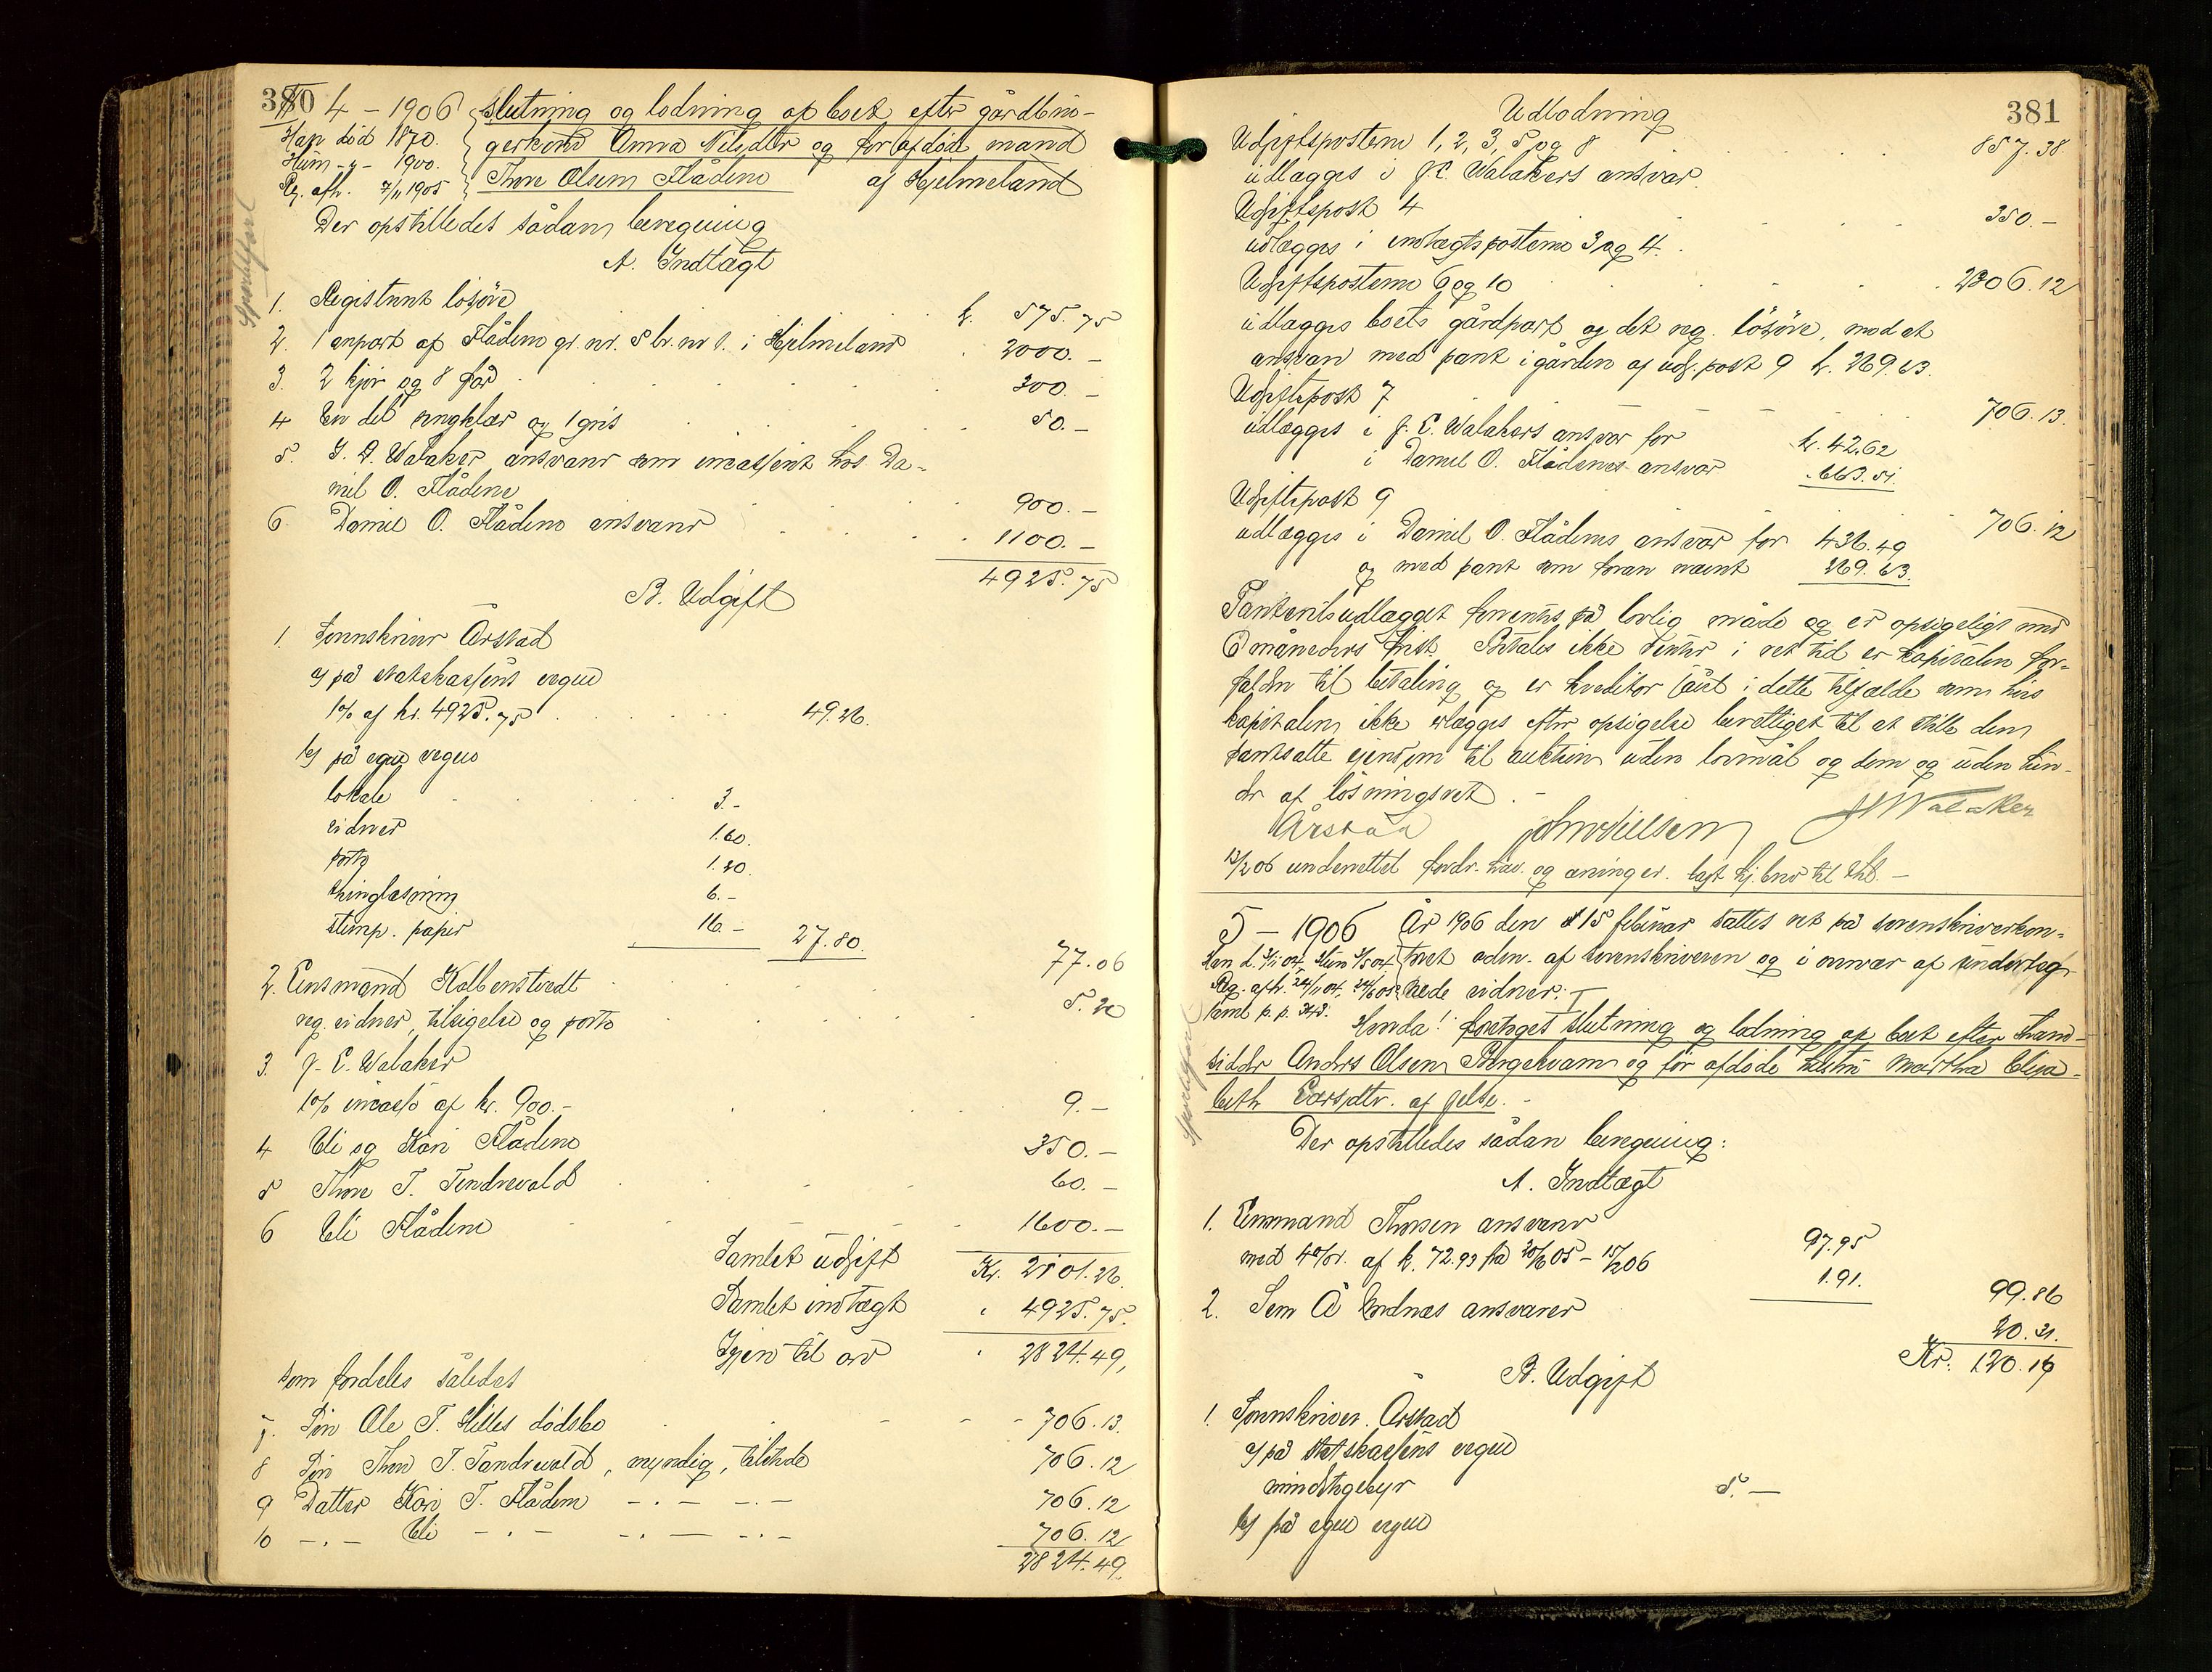 380
4 – 1906 slutning og lodning af boet efter gårdbru-
Han död 1870. gerkone Anna Nilsdtr og förafdöde mand
Hun -"- 1900.
Reg. afh. 7/11 1905 Thore Olsen Flådene af Hjelmeland
Der opstilledes sådan beregning
A. Indtægt
1. Registreret lösöre k. 575.75
2. 1 anpart af Flådene gr. nr. 5 br. nr 1. i Hjelmeland 2000.–
3. 2 kjör og 8 får 300.–
4 En del sengklær og 1 gris 50.–
5. J. E. Walaker ansvarer som incasseret hos Da-
niel O. Flådene 900.–
6. Daniel O. Flådene ansvarer 1100.–
4925.75
B. Udgift
1. Sorenskriver Årstad
a) på statskassens vegne
1% af kr. 4925.75 49.26.
b) på egne vegne
lokale 3.–
vidner 1.60.
porto 1.20.
thinglæsning 6.–
stemp. papir 16.– 27.80.
77.06
2. Lensmand Kolbenstvedt
reg. vidner, tilsigelse og porto 5.20
3. J. E. Walaker
1% incasso af kr. 900.– 9.–
4 Eli og Kari Flådene 350.–
5 Thore T. Tendrevold 60.–
6 Eli Flådene 1600.–
Samlet udgift Kr. 2101.26.
Samlet indtægt " 4925.75.
Igjen til arv " 2824.49,
som fordeles således
7. Sön Ole T. Hilles dödsbo 706.13.
8 Sön Thore T. Tandrevold, myndig, tilstede 706.12
9 Datter Kari T. Flådene –"– –"– 706.12
10 –"– Eli –"– –"– –"– 706.12
2824.49.
381
Udlodning
Udgiftsposterne 1, 2, 3, 5 og 8 857.38.
udlægges i J. E. Walakers ansvar.
Udgiftspost 4 350.–
udlægges i indtægtsposterne 3 og 4.
Udgiftsposterne 6 og 10 2306.12
udlægges boets gårdpart og det reg. lösöre, mod at
ansvare med pant i gården af udg. post 9 k. 269.63.
Udgiftspost 7 706.13.
udlægges i J. E. Walakers ansvar for k. 42.62
i Daniel O. Flådenes ansvar . 663.51.
Udgiftspost 9 706.12
udlægges i Daniel O. Flådenes ansvar for 436.49
og med pant som foran nævnt 269.63.
Panteudlægget forrentes på lovlig måde og er opsigeligt med
3 måneders frist. Betales ikke renter i ret tid er kapitalen for-
falden til betaling og er kreditor såvel i dette tilfælde som hvis
kapitalen ikke erlægges efter opsigelse berettiget til at stille den
pantsatte eiendom til auktion uden lovmål og dom og uden hin-
der af lösningsret.–
Årstad John Nielsen J E Walaker
13/2 06 underrettet fordr. hav. og arvinger.
5 – 1906 År 1906 den 15 februar sattes ret på sorenskriverkon-
toret adm. af sorenskriveren og i overvær af undertegn-
ede vidner:
Hvorda! foretoges slutning og lodning af boet efter strand-
sidder Anders Olsen Bergekvam og för afdöde hustru Martha Elisa-
beth Larsdtr. af Jelse.–
Der opstilledes sådan beregning:
A. Indtægt
1. Lensmand Thorsen ansvarer 97.95
med 4% r. af k. 72.93 fra 20/6 05 – 15/2 06 1.91. 99.86
2. Sem Å ansvarer 20.31.
Kr. 120.17
B. Udgift
1. Sorenskriver Årstad
a) på statskassens vegne
mindstegebyr 5.–
b) på egne vegne